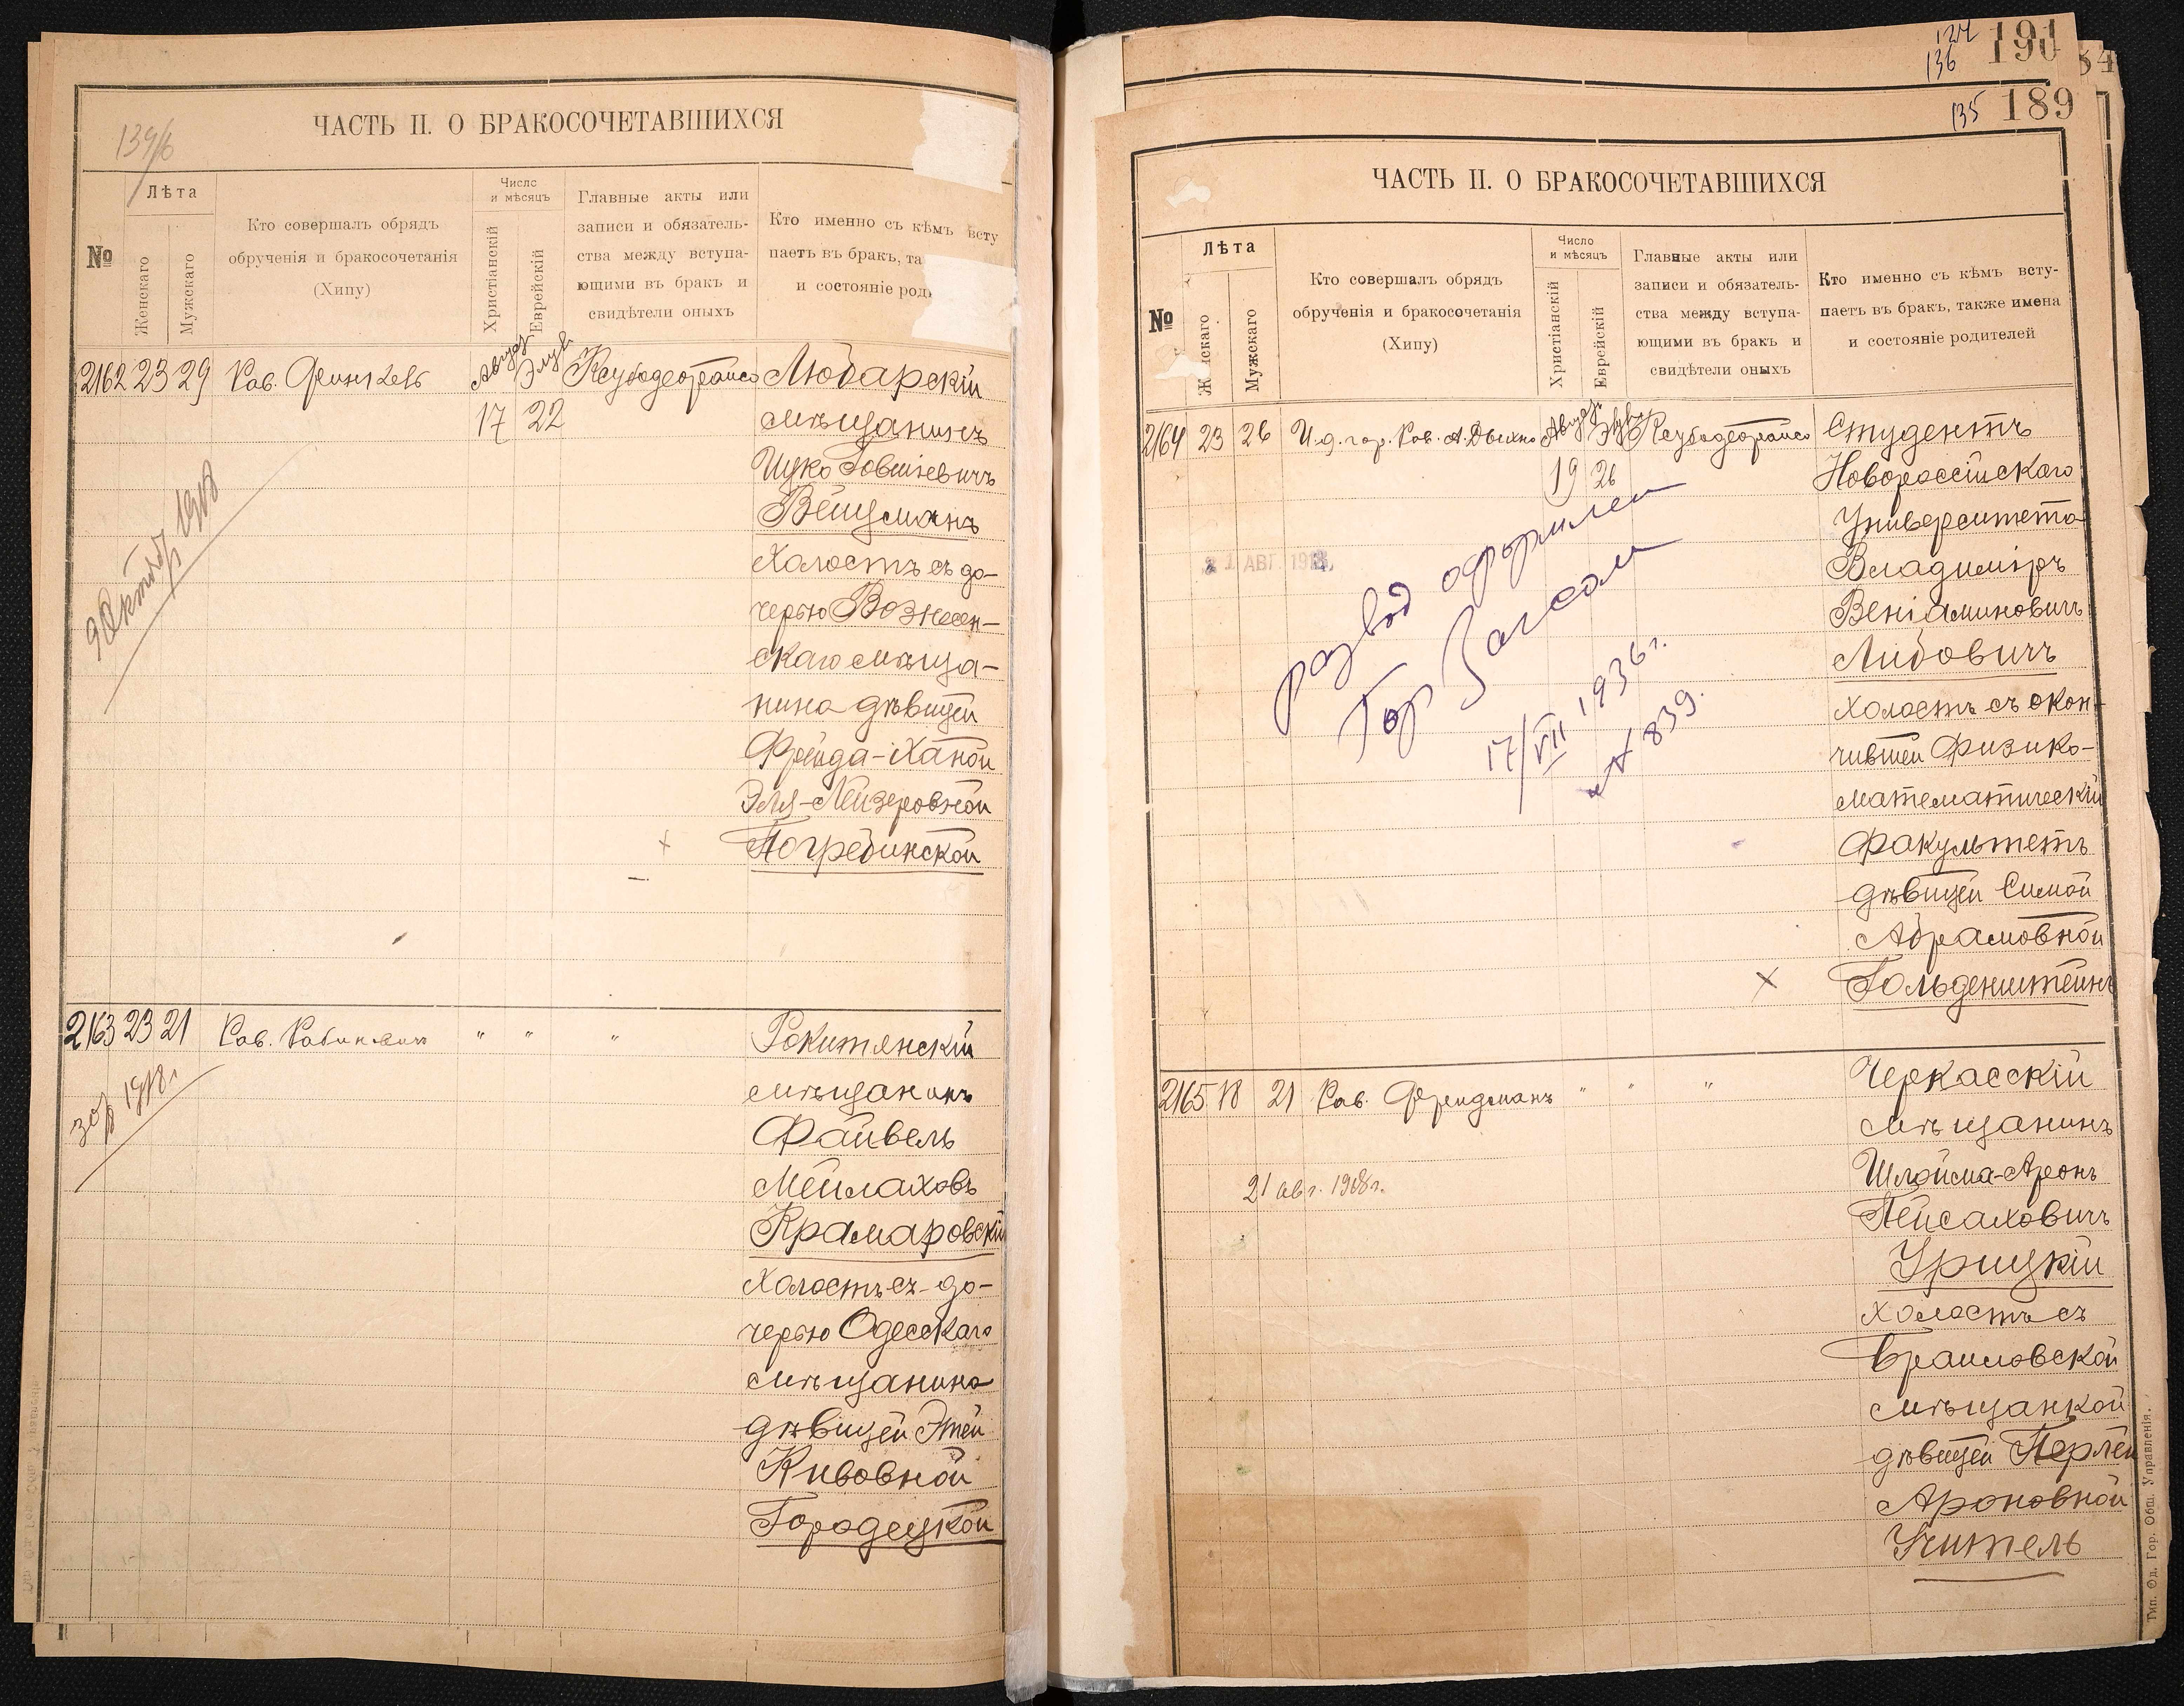 139/б
ЧАСТЬ II. О БРАКОСОЧЕТАВШИХСЯ
№
Лѣта
Женскаго
Мужскаго
Кто совершалъ обрядъ
обрученія и бракосочетанія
(Хипу)
Число
и мѣсяцъ
Христіанскій
Еврейскій
Главные акты или
записи и обязатель-
ства между вступа-
ющими въ бракъ и
свидѣтели оныхъ
Кто именно съ кѣмъ всту
паетъ въ бракъ, та
и состояніе род
2162 23 29 Рав. Август Элул Ксубадеорайса Любарскій
17 22 мѣщанинъ
Ицко Іовшіевичъ
Вейцманъ
холостъ съ до-
черью Вознесен-
скаго мѣща-
нина дѣвицей
Фрейда-Ханой
Эля-Лейзеровной
Погребинской
9 Октябр 1918
2163 23 21 Рав. Рабиновичъ " " " Рокитянскій
мѣщанинъ
Файвель
Мейлаховъ
Крамаровскій
холостъ съ до-
черью Одесскаго
мѣщанина
дѣвицей Этей
Кивовной
Городецкой
1918 г.
124
136 190
84
135 189
ЧАСТЬ II. О БРАКОСОЧЕТАВШИХСЯ
№
Лѣта
Ж нскаго
Мужскаго
Кто совершалъ обрядъ
обрученія и бракосочетанія
(Хипу)
Число
и мѣсяцъ
Христіанскій
Еврейскій
Главные акты или
записи и обязатель-
ства между вступа-
ющими въ бракъ и
свидѣтели оныхъ
Кто именно съ кѣмъ всту-
паетъ въ бракъ, также имена
и состояніе родителей
2164 23 26 И.д. гор. Рав. А. Дыхно Август Элул Ксубадеорайса Студентъ
19 26 Новороссійскаго
Университета
Владиміръ
Веніаминовичъ
Либовичъ
холостъ съ окон-
чившей Физико-
математическій
факультетъ
дѣвицей Симой
Абрамовной
Гольденштейнъ
21 АВГ. 1918
развод оформлен
Гор Загсом
17/VII 1936 г.
№ 839.
2165 18 21 Рав. Фридманъ " " " Черкасскій
мѣщанинъ
Шлойма-Аронъ
Пейсаховичъ
Урицкій
холостъ съ
Браиловской
мѣщанкой
дѣвицей Перлей
Ароновной
Учитель
21 авг. 1918 г.
Тип. Од. Гор. Общ. Управленія.